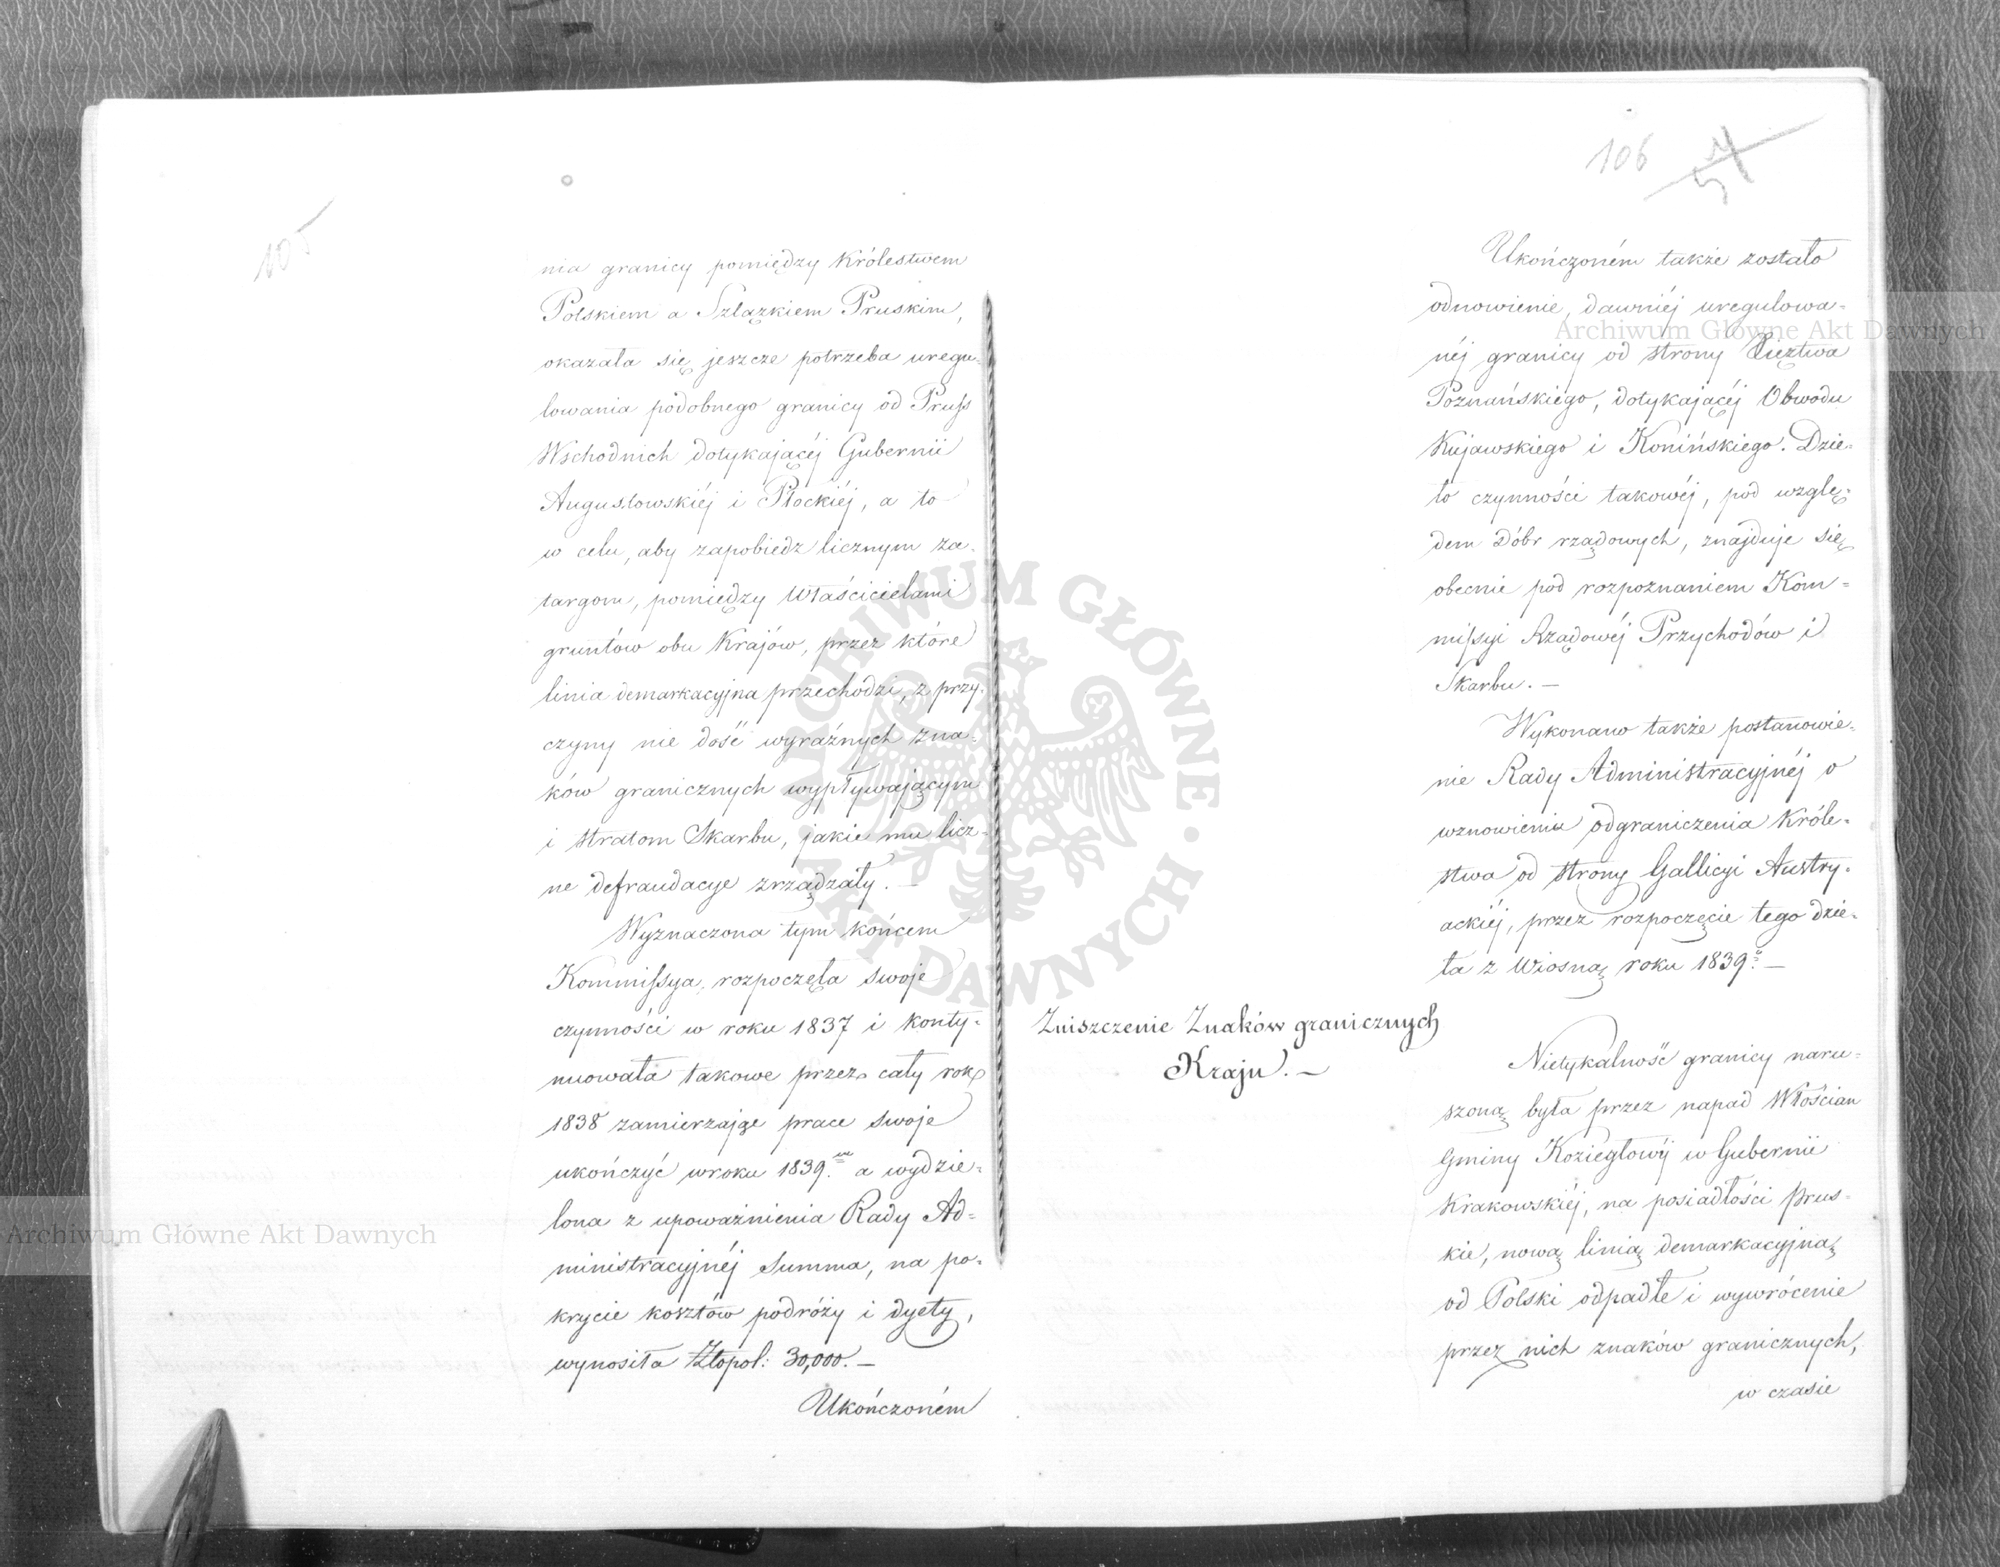 105
nia granicy pomiędzy Królestwem
Polskiem a Szlązkiem Pruskim,
okazała się jeszcze potrzeba uregu-
lowania podobnego granicy od Pruss
Wschodnich dotykającéj Gubernii
Augustowskiéj i Płockiéj, a to
w celu, aby zapobiedz licznym za-
targom, pomiędzy Właścicielami
gruntów obu Krajów, przez które
linia demarkacyjna przechodzi, z przy-
czyny nie dość wyraźnych zna-
ków granicznych wypływającym
i stratom Skarbu, jakie mu licz-
ne defraudacye zrządzały. —
Wyznaczona tym końcem
Kommissya, rozpoczęła swoje
czynności w roku 1837 i konty-
nuowała takowe przez cały rok
1838 zamierzając prace swoje
ukończyć w roku 1839.m a wydzie-
lona z upoważnienia Rady Ad-
ministracyjnéj summa, na po-
krycie kosztów podróży i dyety,
wynosiła Złopol: 30,000. —
Ukończoném
106
57
Ukończoném także zostało
odnowienie, dawniéj uregulowa-
néj granicy od strony Xięztwa
Poznańskiego, dotykającéj Obwodu
Kujawskiego i Konińskiego. Dzie-
ło czynności takowéj, pod wzglę-
dem Dóbr rządowych, znajduje się
obecnie pod rozpoznaniem Kom-
missyi Rządowéj Przychodów i
Skarbu. —
Wykonano także postanowie-
nie Rady Administracyjnéj o
wznowieniu odgraniczenia Króle-
stwa od strony Gallicyi Austry-
ackiéj, przez rozpoczęcie tego dzie-
ła z Wiosną roku 1839.o —
Zniszczenie Znaków granicznych
Kraju. —
Nietykalność granicy naru-
szoną była przez napad Włościan
Gminy Koziegłowy w Gubernii
Krakowskiéj, na posiadłości prus-
kie, nową linią demarkacyjną
od Polski odpadłe i wywrócenie
przez nich znaków granicznych,
w czasie
ARCHIWUM GŁÓWNE AKT DAWNYCH
Archiwum Główne Akt Dawnych
Archiwum Główne Akt Dawnych